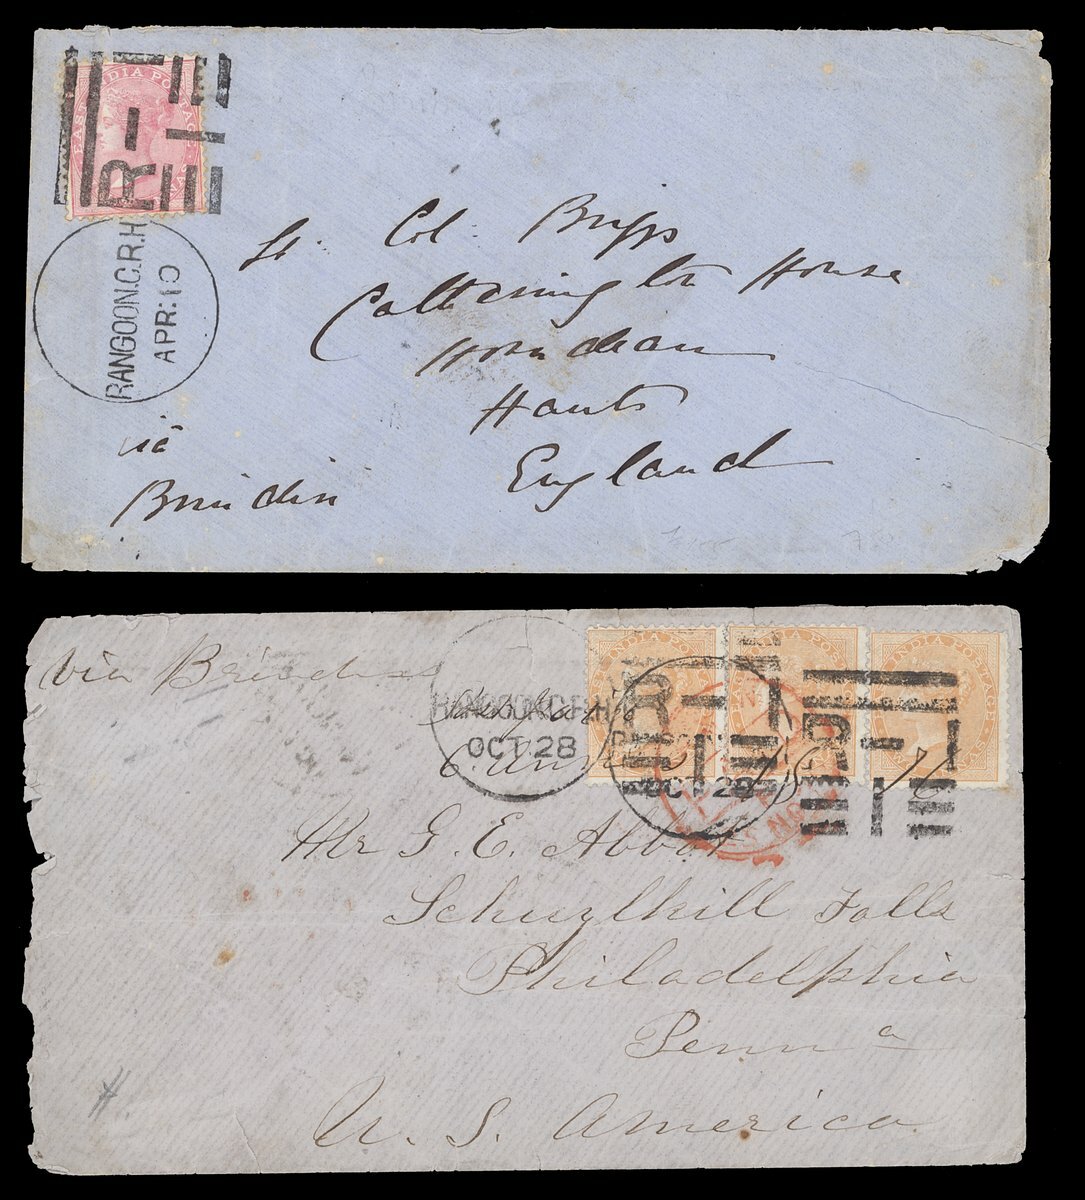 EAST INDIA POSTAGE
R-1
RANGOON.C.R.H
APR:10
Lt. Col: Briggs
Catherington House
Horndean
Hants
England
via
Brindisi
via Brindisi
RANGOON.C.R.H
OCT:28
INDIA POSTAGE
INDIA POSTAGE
INDIA POSTAGE
R-1
R-1
OCT:28
Mr G. E. Abbot
Schuylkill Falls
Philadelphia
Penna
U. S. America